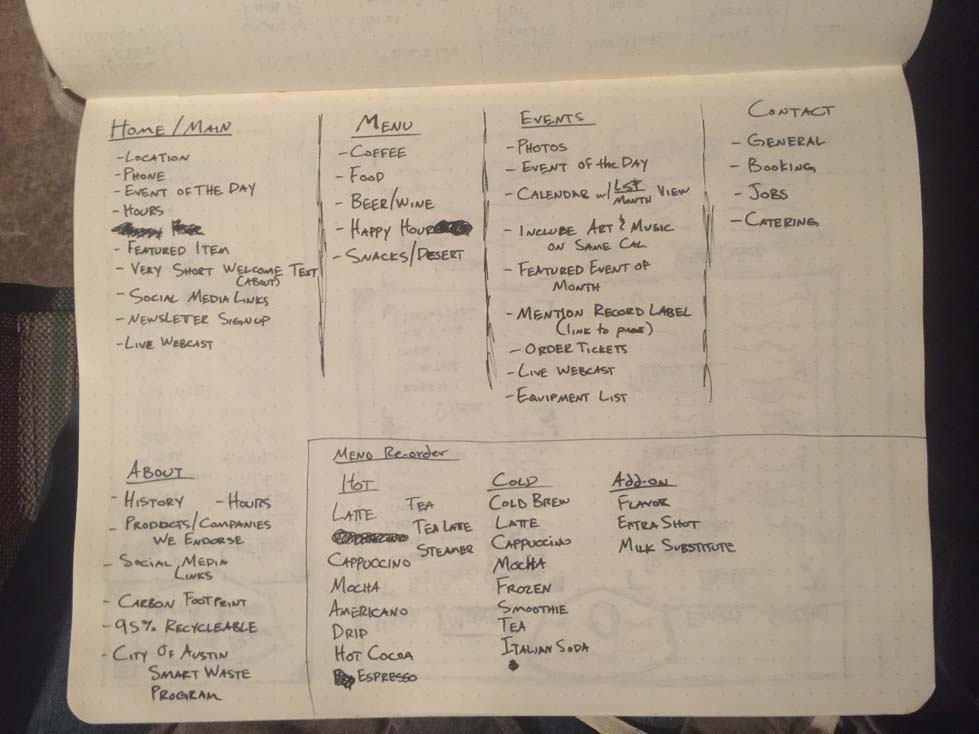 Home/Main
-Location
-Phone
-Event of the Day
-Hours
-Featured Item
-Very Short Welcome Text
(About)
-Social Media Links
-Newsletter Signup
-Live Webcast
Menu
-Coffee
-Food
-Beer/Wine
-Happy Hour
-Snacks/Desert
Events
-Photos
-Event of the Day
-Calendar w/ List
Month View
-Include Art & Music
on Same Cal.
-Featured Event of
Month
-Mention Record Label
(link to page)
-Order Tickets
-Live Webcast
-Equipment List
Contact
-General
-Booking
-Jobs
-Catering
About
-History -Hours
-Products/Companies
We Endorse
-Social Media
Links
-Carbon Footprint
-95% Recycleable
-City Of Austin
Smart Waste
Program
Menu Re-order
Hot
Latte
Cappuccino
Mocha
Americano
Drip
Hot Cocoa
Espresso
Tea
Tea Latte
Steamer
Cold
Cold Brew
Latte
Cappuccino
Mocha
Frozen
Smoothie
Tea
Italian Soda
Add-on
Flavor
Extra Shot
Milk Substitute